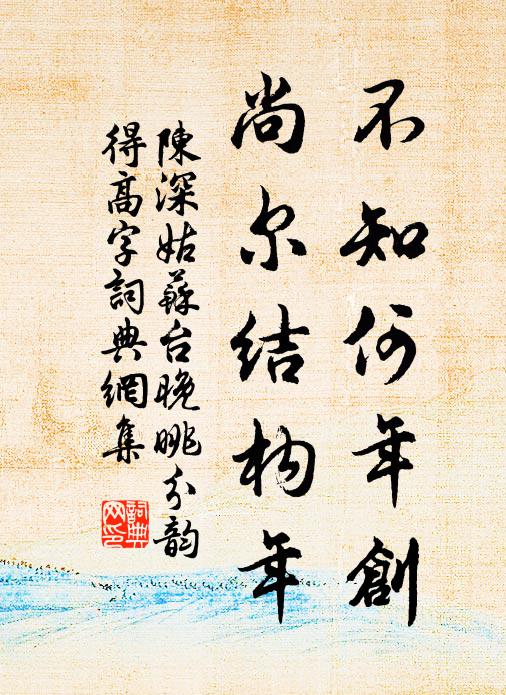 不知何年創
尚尔结构年
陳深姑蘇台晚眺分韵
得高字詞典網集
詞典
网印